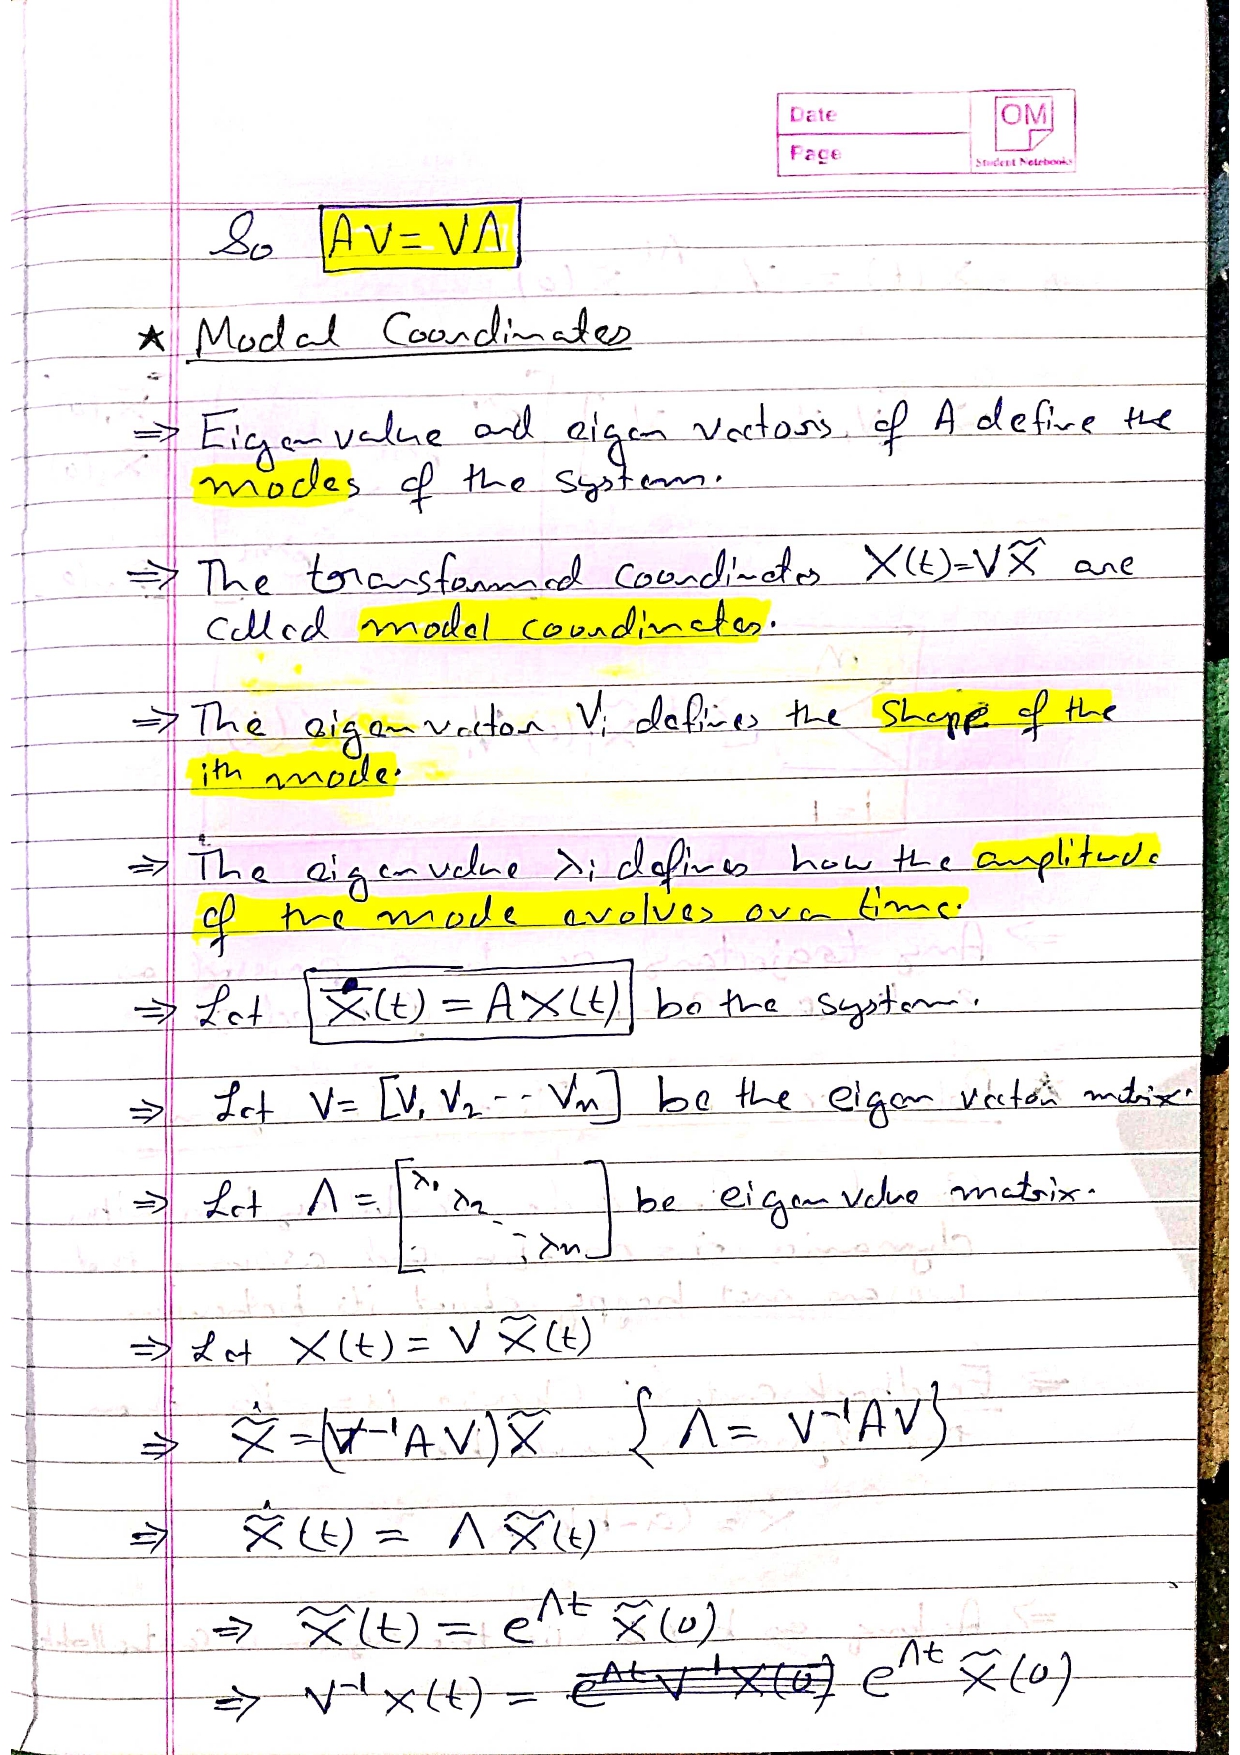 Date
OM
Page
Student Notebooks
So AV = VΛ
★ Modal Coordinates
⇒ Eigenvalue and eigen vectors of A define the
modes of the system.
⇒ The transformed coordinates X(t)=VX̃ are
called modal coordinates.
⇒ The eigenvector Vi defines the shape of the
ith mode.
⇒ The eigenvalue λi defines how the amplitude
of the mode evolves over time.
⇒ Let Ẋ(t) = AX(t) be the system.
⇒ Let V= [V1 V2 -- Vn] be the eigen vector matrix.
⇒ Let Λ = [λ1 λ2 λn] be eigenvalue matrix.
⇒ Let X(t) = V X̃(t)
⇒ X̃̇ = (V⁻¹AV)X̃ { Λ = V⁻¹AV}
⇒ X̃̇(t) = Λ X̃(t)
⇒ X̃(t) = e^Λt X̃(0)
⇒ V⁻¹x(t) = e^Λt V⁻¹X(0) e^Λt X̃(0)